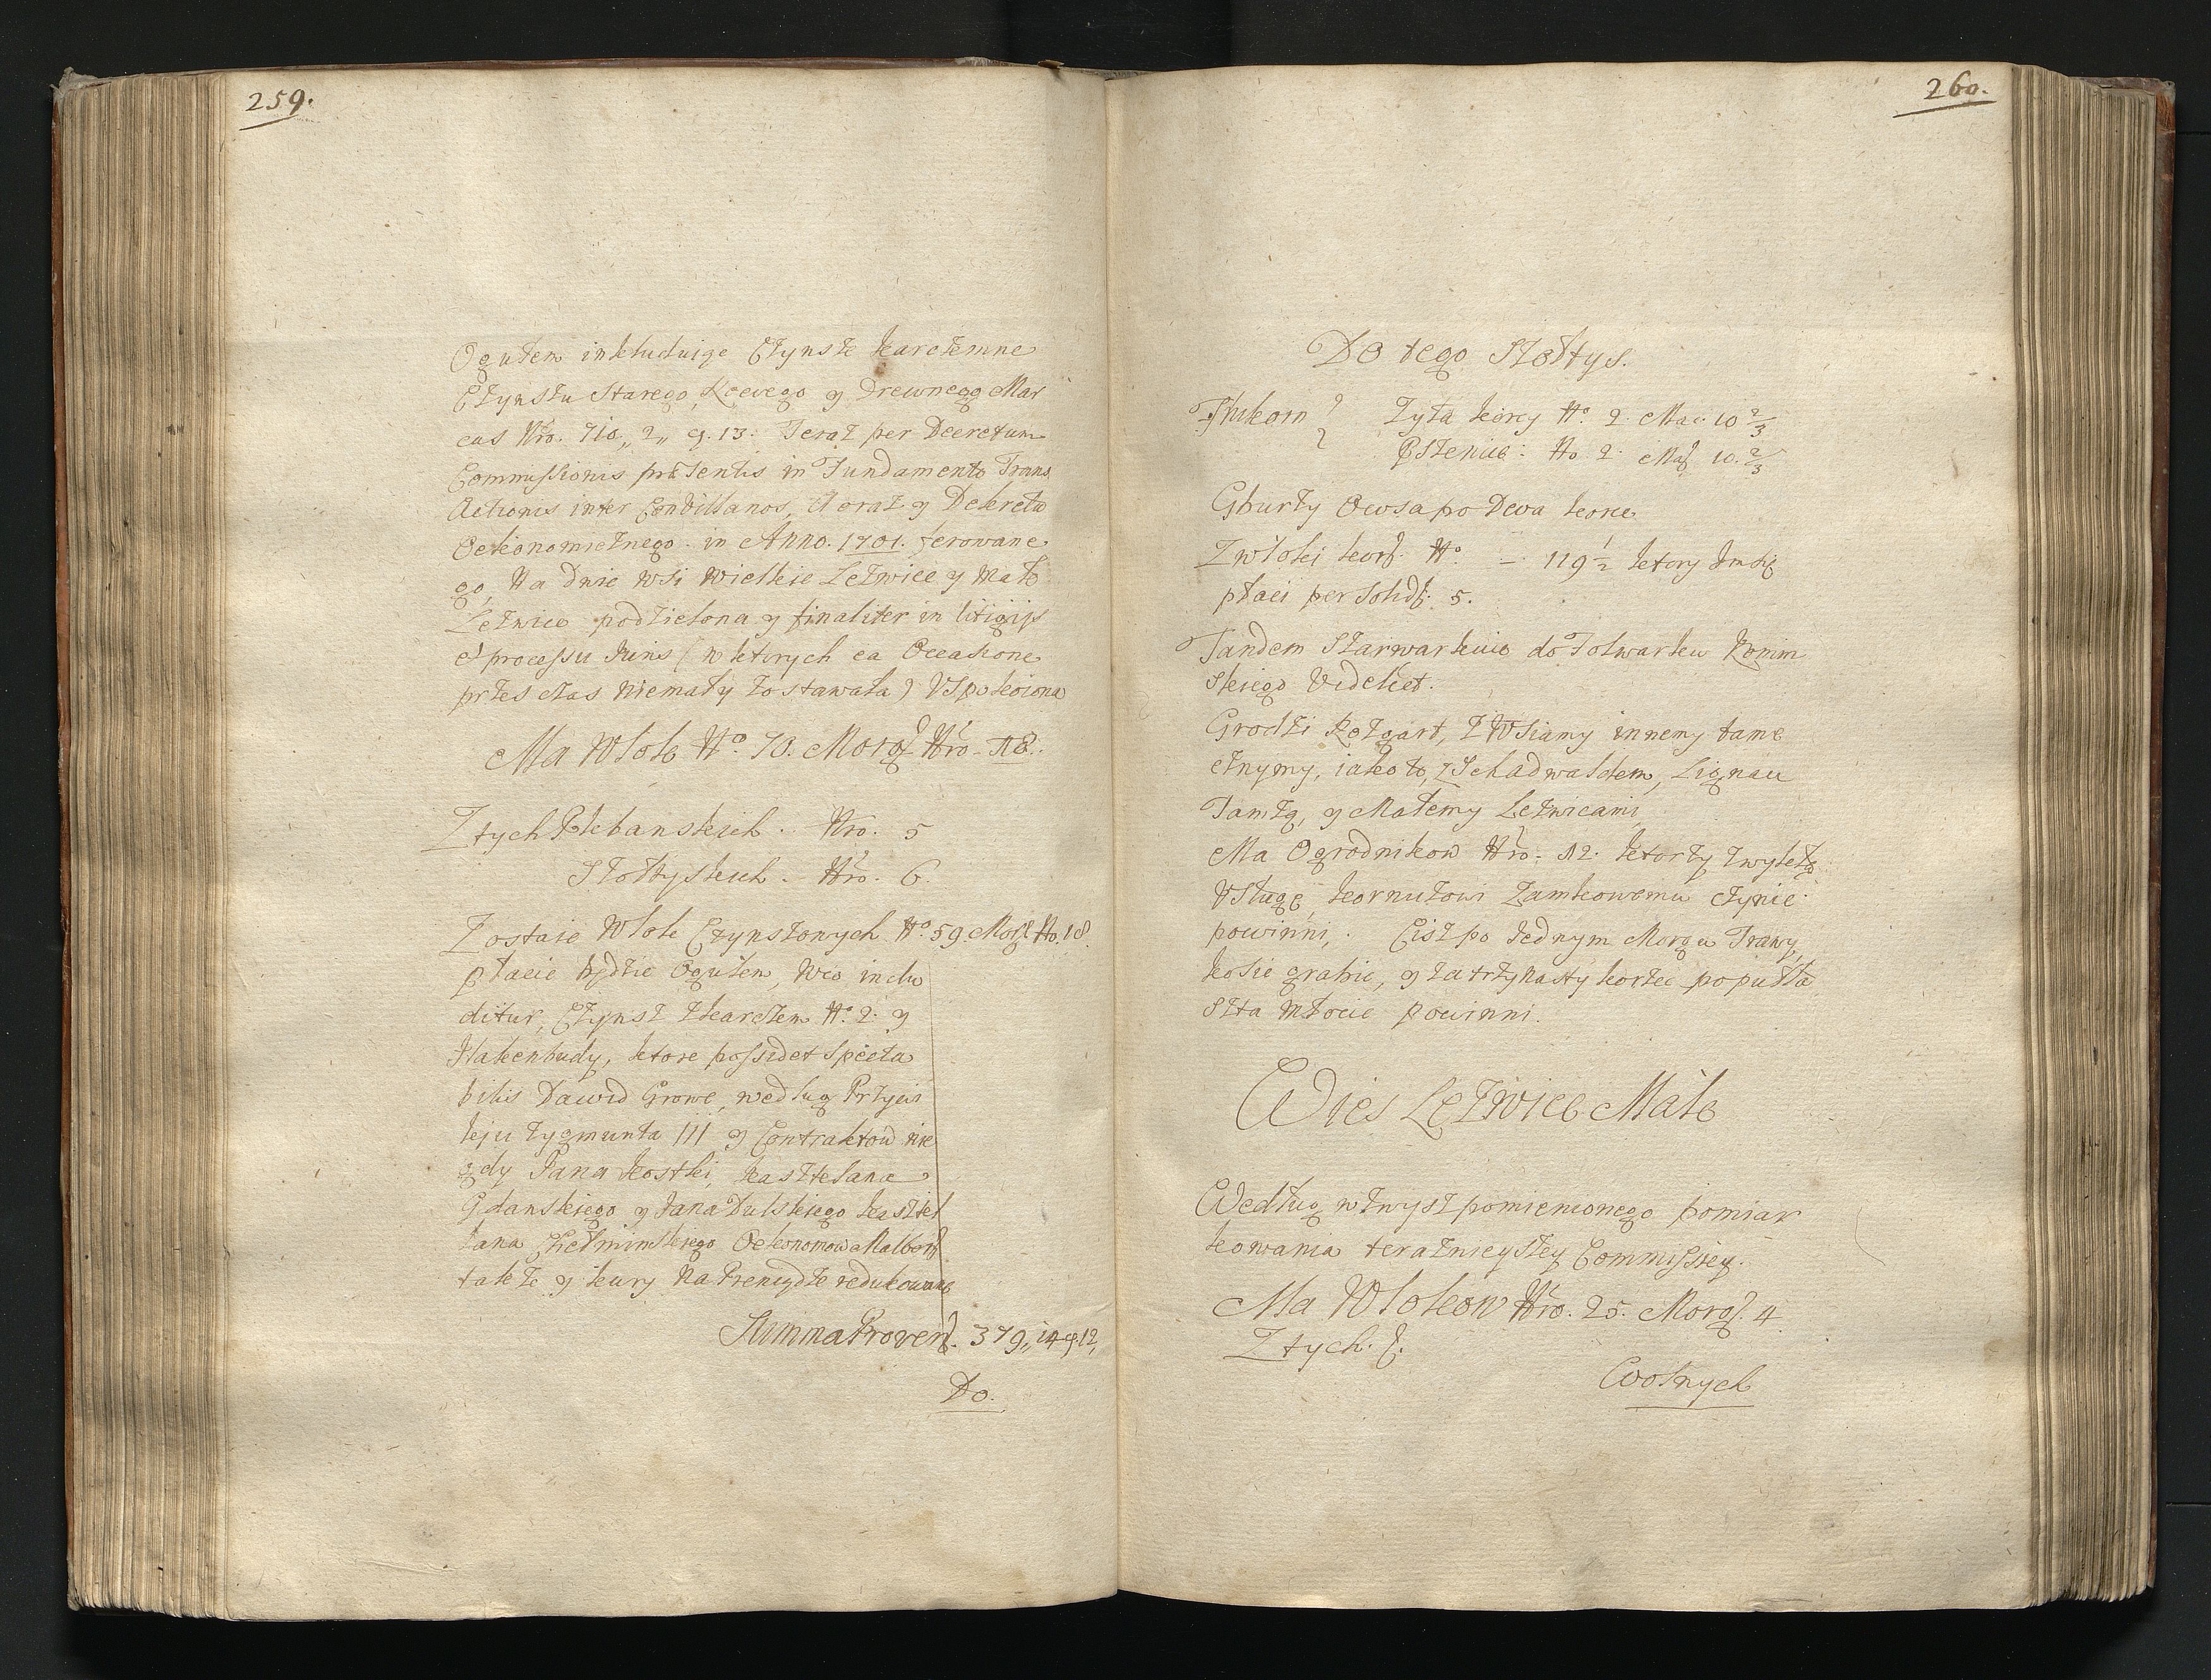 259.
Ogułem inkluduiąc Czynsze karczemne
Czynszu Starego, Nowego y Drewnego Mar
cas Nro. 710„ 2„ g. 13. Teraz per Decretum
Commissionis præsentis in Fundamento Trans
Actionis inter Convillanos, A oraz y Dekretu
Oekonomicznego in Anno. 1701. ferowane
go, Na dwie wsi Wielkie Lezwice y Małe
Lezwice podzielona y finaliter in litigijs
et processu Iuris (w ktorych ea Occasione
przes czas Niemały zostawała) Uspokoiona
Ma Włok No. 70. Morg Nro. 18.
Z tych Plebanskich. Nro. 5
Szołtyskich. Nro. 6.
Zostaie Włok Czynszowych No. 59. Morg No. 18.
płacić będzie Ogułem, w co inclu
ditur, Czynsz z karczem No. 2. y
Hakenbudy, ktore possidet Specta
bilis Dawid Growe, według Przywi
leju Zygmunta III y Contraktow nie
gdy Pana Kostki, kasztelana
Gdanskiego y Jana Dulskiego kasztel
lana Chełminskiego Oekonomow Malbor
takze y kury Na Pieniądze redukowane
Summa Proven. 379„ 14 g. 12„
Do.
260.
Do tego Szołtys.
Zyta korcy No. 2. Mac. 10 2/3
Pszenice: No. 2. Mac. 10. 2/3
Gburzy Owsa po Dwa korce
Z włoki korc. No. – 119 1/2 ktory
płaci per Solid. 5.
Tandem Szarwarkuie do Folwarku Konim
skiego Videlicet.
Grodzi Rozgart, z Wsiamy innemy tame
cznymy, iako to, z Schadwaldem, Lignau
Tamzą, y Małemy Lezwicami
Ma Ogrodnikow Nro. 12. ktorzy zwykłą
Usługę kornutowi Zamkowemu czynic
powinni, Cisz po Jednym Morgu Trawy,
kosic grabic, y za trzynasty korzec
młocic powinni.
Wies Lezwice Małe
Według wzwysz pomienionego pomiar
kowania teraznieyszey Commissiey.
Ma Włokow Nro. 25. Morg. 4
Z tych.
Wolnych